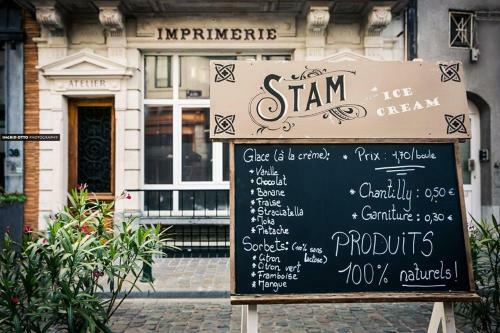 IMPRIMERIE
ATELIER
INGRID OTTO PHOTOGRAPHY
STAM
ICE
CREAM
Glace (à la crème):
* Vanille
* Chocolat
* Banane
* Fraise
* Straciatella
* Moka
* Pistache
Sorbets: (100% sans lactose)
* Citron
* Citron vert
* Framboise
* Mangue
* Prix: 1,70/boule
* Chantilly: 0,50 €
* Garniture: 0,30 €
PRODUITS
100% naturels!